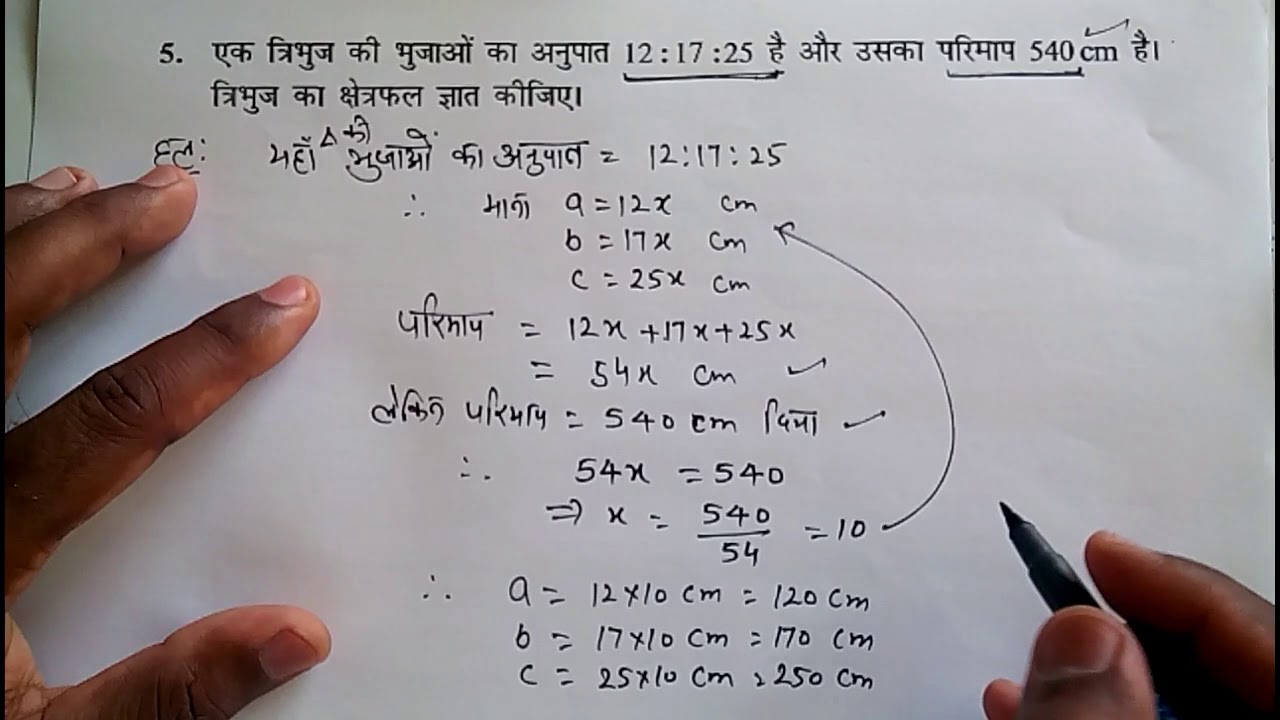 5. एक त्रिभुज की भुजाओं का अनुपात 12 : 17 : 25 है और उसका परिमाप 540 cm है।
त्रिभुज का क्षेत्रफल ज्ञात कीजिए।
हल: यहाँ Δ की भुजाओं का अनुपात = 12:17:25
∴ माना a = 12x cm
b = 17x cm
c = 25x cm
परिमाप = 12x +17x+25x
= 54x cm
लेकिन परिमाप = 540 cm दिया
∴ 54x = 540
⇒ x = 540/54 = 10
∴ a = 12×10 cm = 120 cm
b = 17×10 cm = 170 cm
c = 25×10 cm = 250 cm